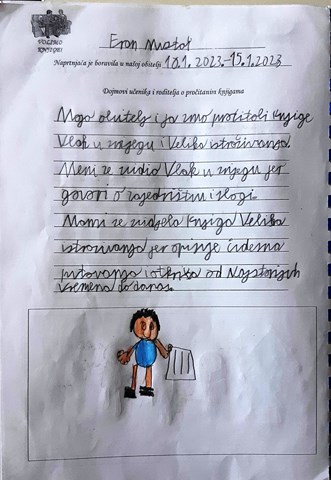 VOLIMO
KNJIGU
Eron
Naprtnjača je boravila u našoj obitelji 10.1. 2023.-15.1.2023
Dojmovi učenika i roditelja o pročitanim knjigama
Moja obitelj i ja smo pročitali knjige
Vlak u snijegu i Velika istraživanja.
Meni se svidio Vlak u snijegu jer
govori o zajedništvu i slogi.
Mami se svidjela knjiga Velika
istraživanja jer opisuje čudesna
putovanja i otkrića od Najstarijih
vremena do danas.